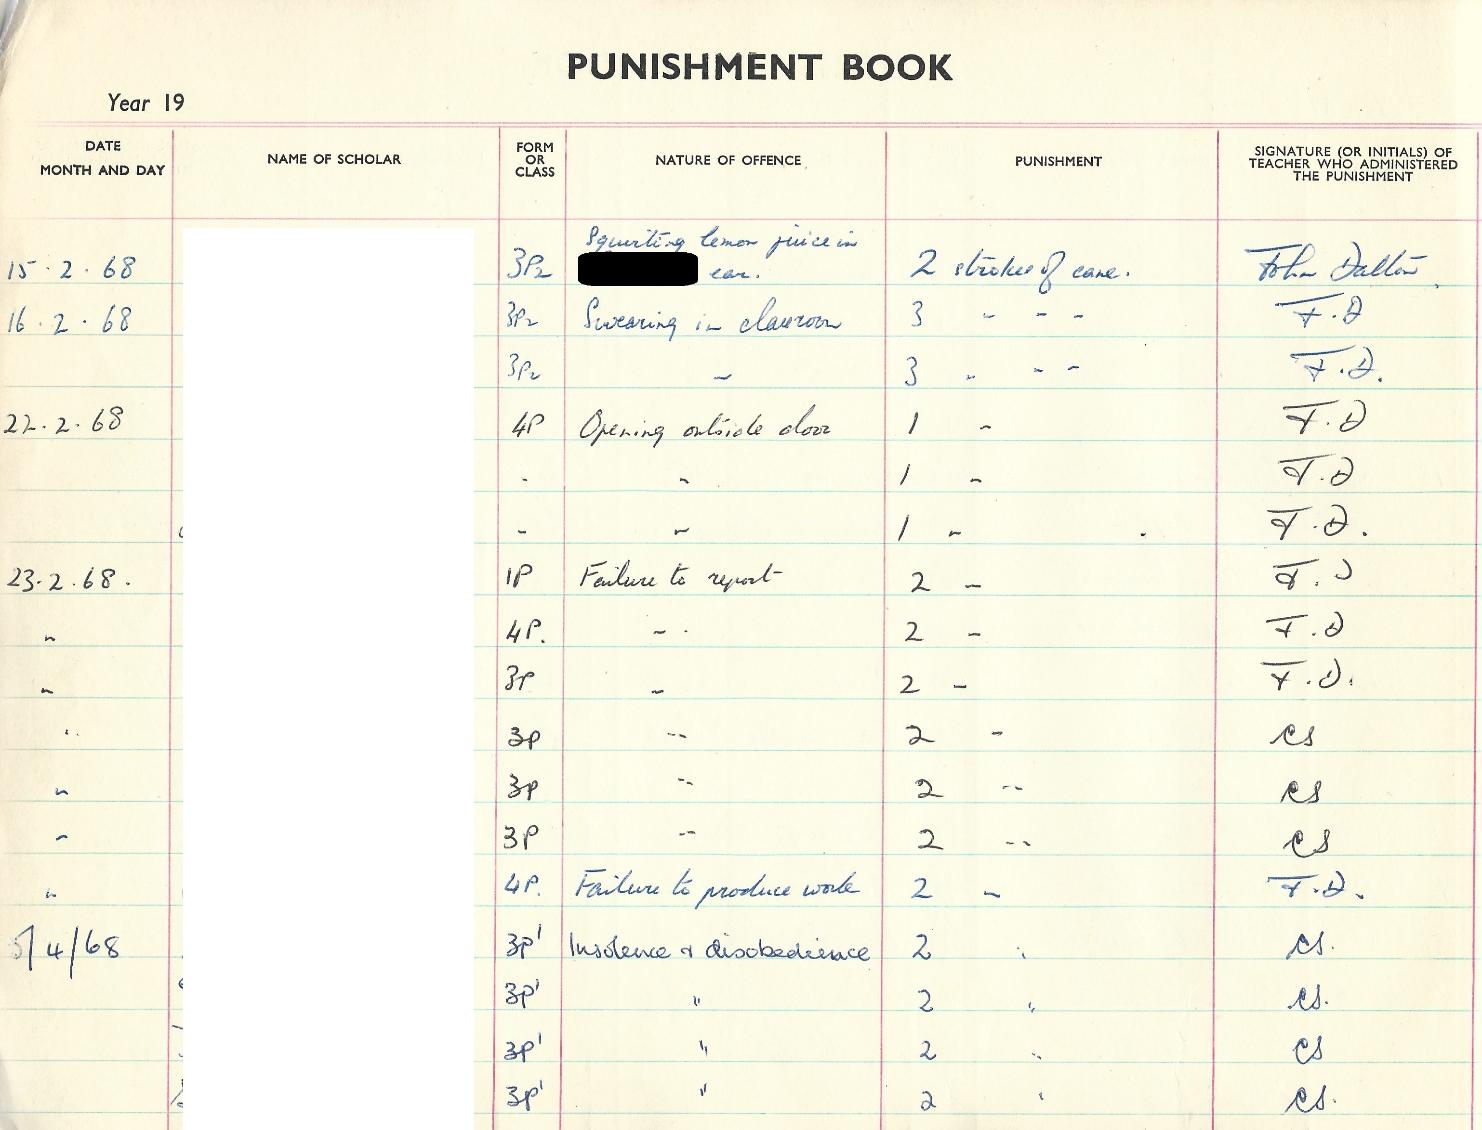 PUNISHMENT BOOK
Year 19
DATE MONTH AND DAY NAME OF SCHOLAR FORM OR CLASS NATURE OF OFFENCE PUNISHMENT SIGNATURE (OR INITIALS) OF TEACHER WHO ADMINISTERED THE PUNISHMENT
Squirting lemon juice in
15.2.68 3P2 ear. 2 strokes of cane. John Dalton
16.2.68 3P2 Swearing in classroom 3 " " " J.D
3P2 " 3 " " " J.D.
22.2.68 4P Opening outside door 1 " J.D
" " 1 " J.D
" " 1 " J.D.
23.2.68. 1P Failure to report 2 " J.D
" 4P. " 2 " J.D
" 3P " 2 " J.D.
" 3P " 2 " CS
" 3P " 2 " CS
" 3P " 2 " CS
" 4P. Failure to produce work 2 " J.D.
5/4/68 3P' Insolence & disobedience 2 " CS.
3P' " 2 " CS.
3P' " 2 " CS
3P' " 2 " CS.